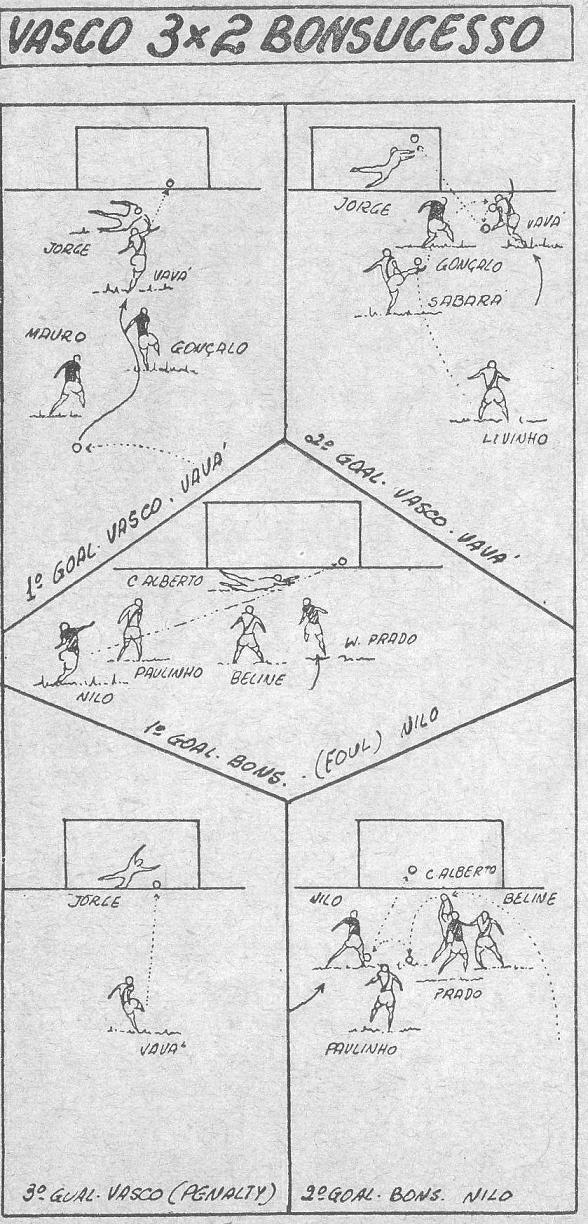 VASCO 3x2 BONSUCESSO
JORGE
VAVÁ
MAURO
GONÇALO
1º GOAL. VASCO. VAVÁ
JORGE
VAVÁ
GONÇALO
SABARÁ
LIVINHO
2º GOAL. VASCO. VAVÁ
C ALBERTO
W. PRADO
PAULINHO
BELINE
NILO
1º GOAL. BONS. (FOUL) NILO
JORGE
VAVÁ
3º GOAL. VASCO (PENALTY)
C ALBERTO
NILO
BELINE
PRADO
PAULINHO
2º GOAL. BONS. NILO